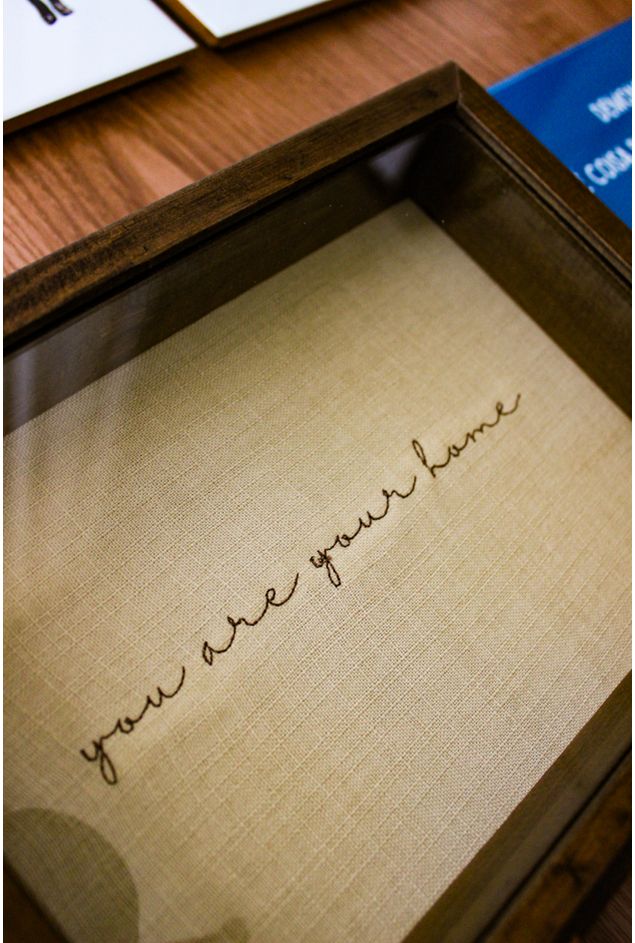 COSA
you are your home